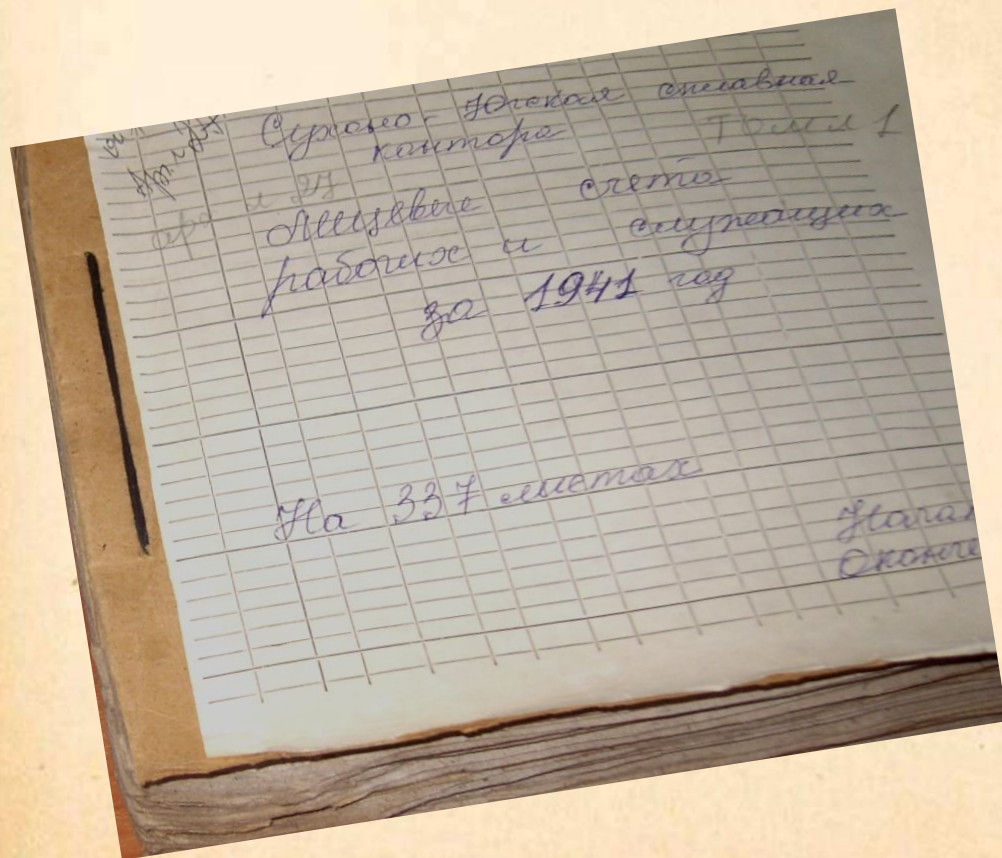 Сухоно-Югская сплавная
контора
Том 1
Лицевые счета
рабочих и служащих
за 1941 год
На 337 листах
Начал
Оконче